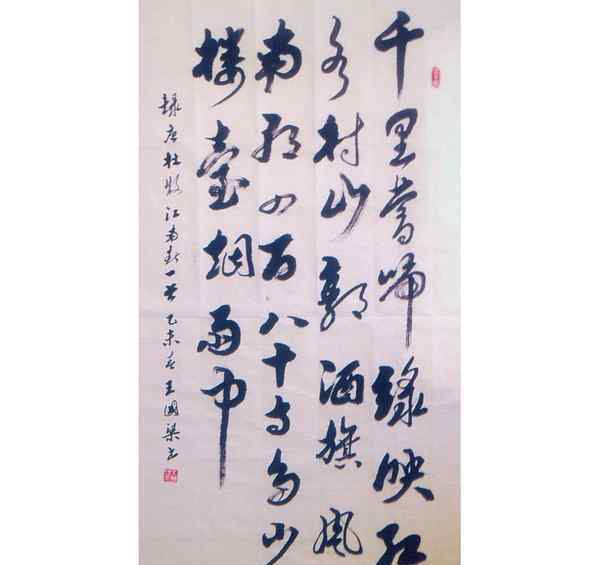 千里鶯啼綠映紅
水村山郭酒旗風
南朝四百八十寺多少
樓臺烟雨中
錄唐杜牧江南春一首乙未春王國梁书